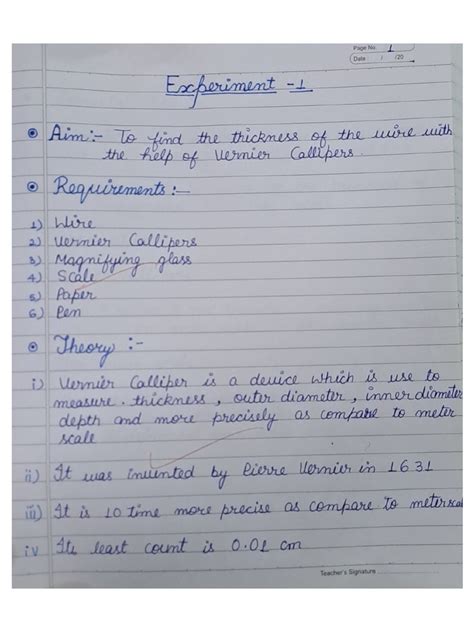 Page No. 1
Date / /20
Experiment -1
Aim:- To find the thickness of the wire with
the help of Vernier Callipers.
Requirements:-
1) Wire
2) Vernier Callipers
3) Magnifying glass
4) Scale
5) Paper
6) Pen
Theory :-
i) Vernier Calliper is a device which is use to
measure. thickness, outer diameter, inner diameter,
depth and more precisely as compare to meter
scale
ii) It was invented by Pierre Vernier in 1631
iii) It is 10 time more precise as compare to meterscal
iv Its least count is 0.01 cm
Teacher's Signature